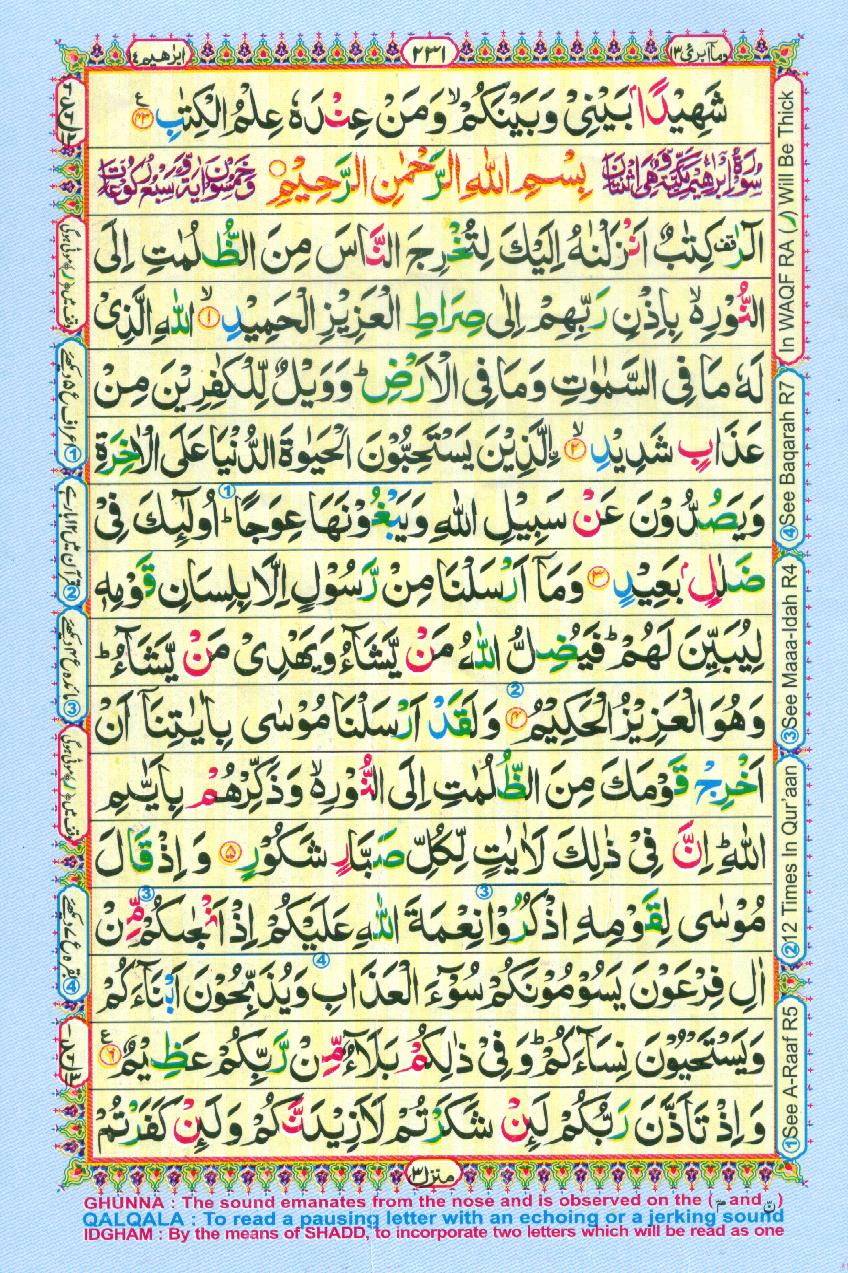 ابرٰهیم ۱۴
۲۳۱
وما ابرئ ۱۳
شَهِيْدًۢا بَيْنِيْ وَبَيْنَكُمْ ۙ وَمَنْ عِنْدَهٗ عِلْمُ الْكِتٰبِ ۴۳
سُوْرَةُ اِبْرٰهِيْمَ مَكِّيَّةٌ وَّهِيَ اثْنَتَانِ بِسْمِ اللّٰهِ الرَّحْمٰنِ الرَّحِيْمِ وَخَمْسُوْنَ اٰيَةً وَّسَبْعُ رُكُوْعَاتٍ
الٓرٰ ۟ قف كِتٰبٌ اَنْزَلْنٰهُ اِلَيْكَ لِتُخْرِجَ النَّاسَ مِنَ الظُّلُمٰتِ اِلَى
النُّوْرِ ۙ بِاِذْنِ رَبِّهِمْ اِلٰى صِرَاطِ الْعَزِيْزِ الْحَمِيْدِ ۙ ۱ اللّٰهِ الَّذِيْ
لَهٗ مَا فِي السَّمٰوٰتِ وَمَا فِي الْاَرْضِ ؕ وَوَيْلٌ لِّلْكٰفِرِيْنَ مِنْ
عَذَابٍ شَدِيْدِ ۙ ۲ اِۨلَّذِيْنَ يَسْتَحِبُّوْنَ الْحَيٰوةَ الدُّنْيَا عَلَى الْاٰخِرَةِ
وَيَصُدُّوْنَ عَنْ سَبِيْلِ اللّٰهِ وَيَبْغُوْنَهَا عِوَجًا ؕ اُولٰٓئِكَ فِيْ
ضَلٰلٍۢ بَعِيْدٍ ۳ وَمَآ اَرْسَلْنَا مِنْ رَّسُوْلٍ اِلَّا بِلِسَانِ قَوْمِهٖ
لِيُبَيِّنَ لَهُمْ ؕ فَيُضِلُّ اللّٰهُ مَنْ يَّشَآءُ وَيَهْدِيْ مَنْ يَّشَآءُ ؕ
وَهُوَ الْعَزِيْزُ الْحَكِيْمُ ۴ وَلَقَدْ اَرْسَلْنَا مُوْسٰى بِاٰيٰتِنَآ اَنْ
اَخْرِجْ قَوْمَكَ مِنَ الظُّلُمٰتِ اِلَى النُّوْرِ ۙ وَذَكِّرْهُمْ بِاَيّٰىمِ
اللّٰهِ ؕ اِنَّ فِيْ ذٰلِكَ لَاٰيٰتٍ لِّكُلِّ صَبَّارٍ شَكُوْرٍ ۵ وَاِذْ قَالَ
مُوْسٰى لِقَوْمِهِ اذْكُرُوْا نِعْمَةَ اللّٰهِ عَلَيْكُمْ اِذْ اَنْجٰىكُمْ مِّنْ
اٰلِ فِرْعَوْنَ يَسُوْمُوْنَكُمْ سُوْٓءَ الْعَذَابِ وَيُذَبِّحُوْنَ اَبْنَآءَكُمْ
وَيَسْتَحْيُوْنَ نِسَآءَكُمْ ؕ وَفِيْ ذٰلِكُمْ بَلَآءٌ مِّنْ رَّبِّكُمْ عَظِيْمٌ ۶
وَاِذْ تَاَذَّنَ رَبُّكُمْ لَئِنْ شَكَرْتُمْ لَاَزِيْدَنَّكُمْ وَلَئِنْ كَفَرْتُمْ
منزل ۳
In WAQF RA (ر) Will Be Thick
④See Baqarah R7
③See Maaa-Idah R4
②12 Times In Qur'aan
①See A-Raaf R5
GHUNNA : The sound emanates from the nose and is observed on the (مّ and نّ)
QALQALA : To read a pausing letter with an echoing or a jerking sound
IDGHAM : By the means of SHADD, to incorporate two letters which will be read as one